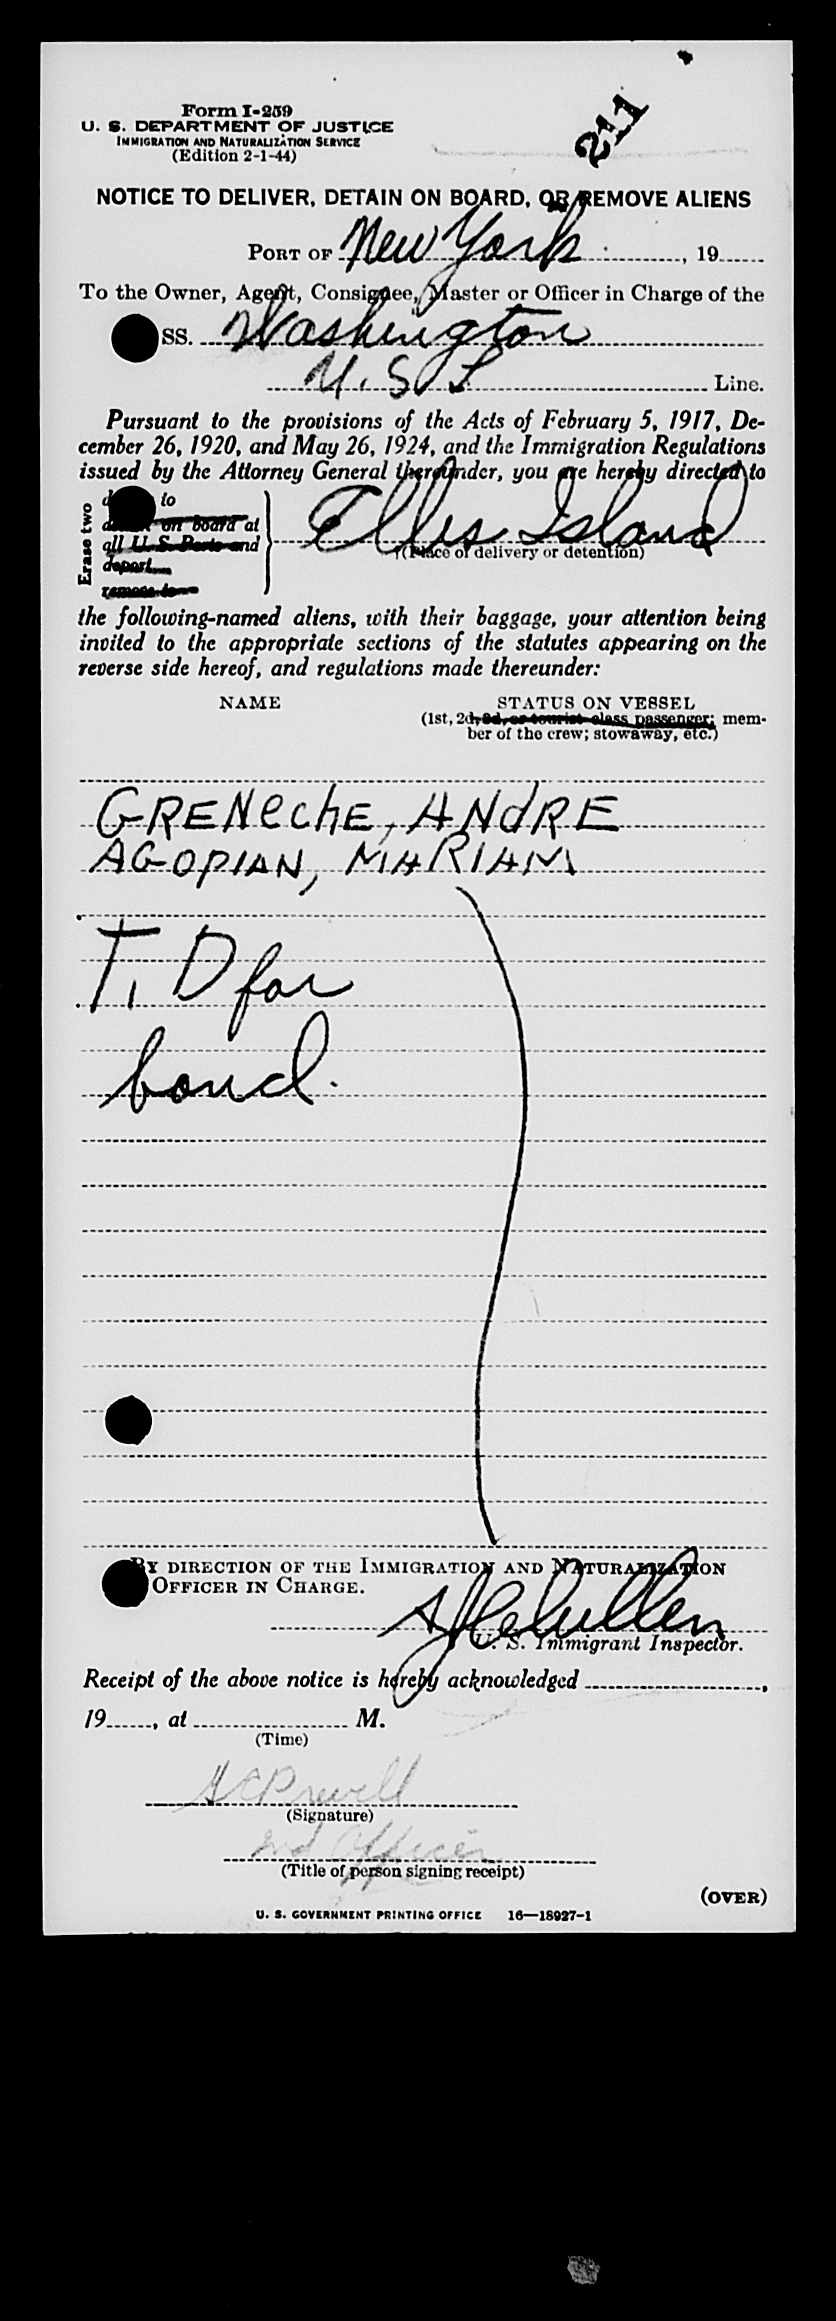 211
Form I-259
U. S. DEPARTMENT OF JUSTICE
IMMIGRATION AND NATURALIZATION SERVICE
(Edition 2-1-44)
NOTICE TO DELIVER, DETAIN ON BOARD, OR REMOVE ALIENS
PORT OF New York, 19
To the Owner, Agent, Consignee, Master or Officer in Charge of the
SS. Washington
U. S. L Line.
Pursuant to the provisions of the Acts of February 5, 1917, De-
cember 26, 1920, and May 26, 1924, and the Immigration Regulations
issued by the Attorney General thereunder, you are hereby directed to
Erase two
to
on board at
all U. S. Ports and
deport
remove to
Ellis Island
(Place of delivery or detention)
the following-named aliens, with their baggage, your attention being
invited to the appropriate sections of the statutes appearing on the
reverse side hereof, and regulations made thereunder:
NAME STATUS ON VESSEL
(1st, 2d, 3d, or tourist class passenger; mem-
ber of the crew; stowaway, etc.)
GRENECHE, ANDRE
AGOPIAN, MARIAM
T. D for
bond.
BY DIRECTION OF THE IMMIGRATION AND NATURALIZATION
OFFICER IN CHARGE.
U. S. Immigrant Inspector.
Receipt of the above notice is hereby acknowledged,
19, at M.
(Time)
(Signature)
2nd Officer
(Title of person signing receipt)
(OVER)
U. S. GOVERNMENT PRINTING OFFICE 16—18927-1